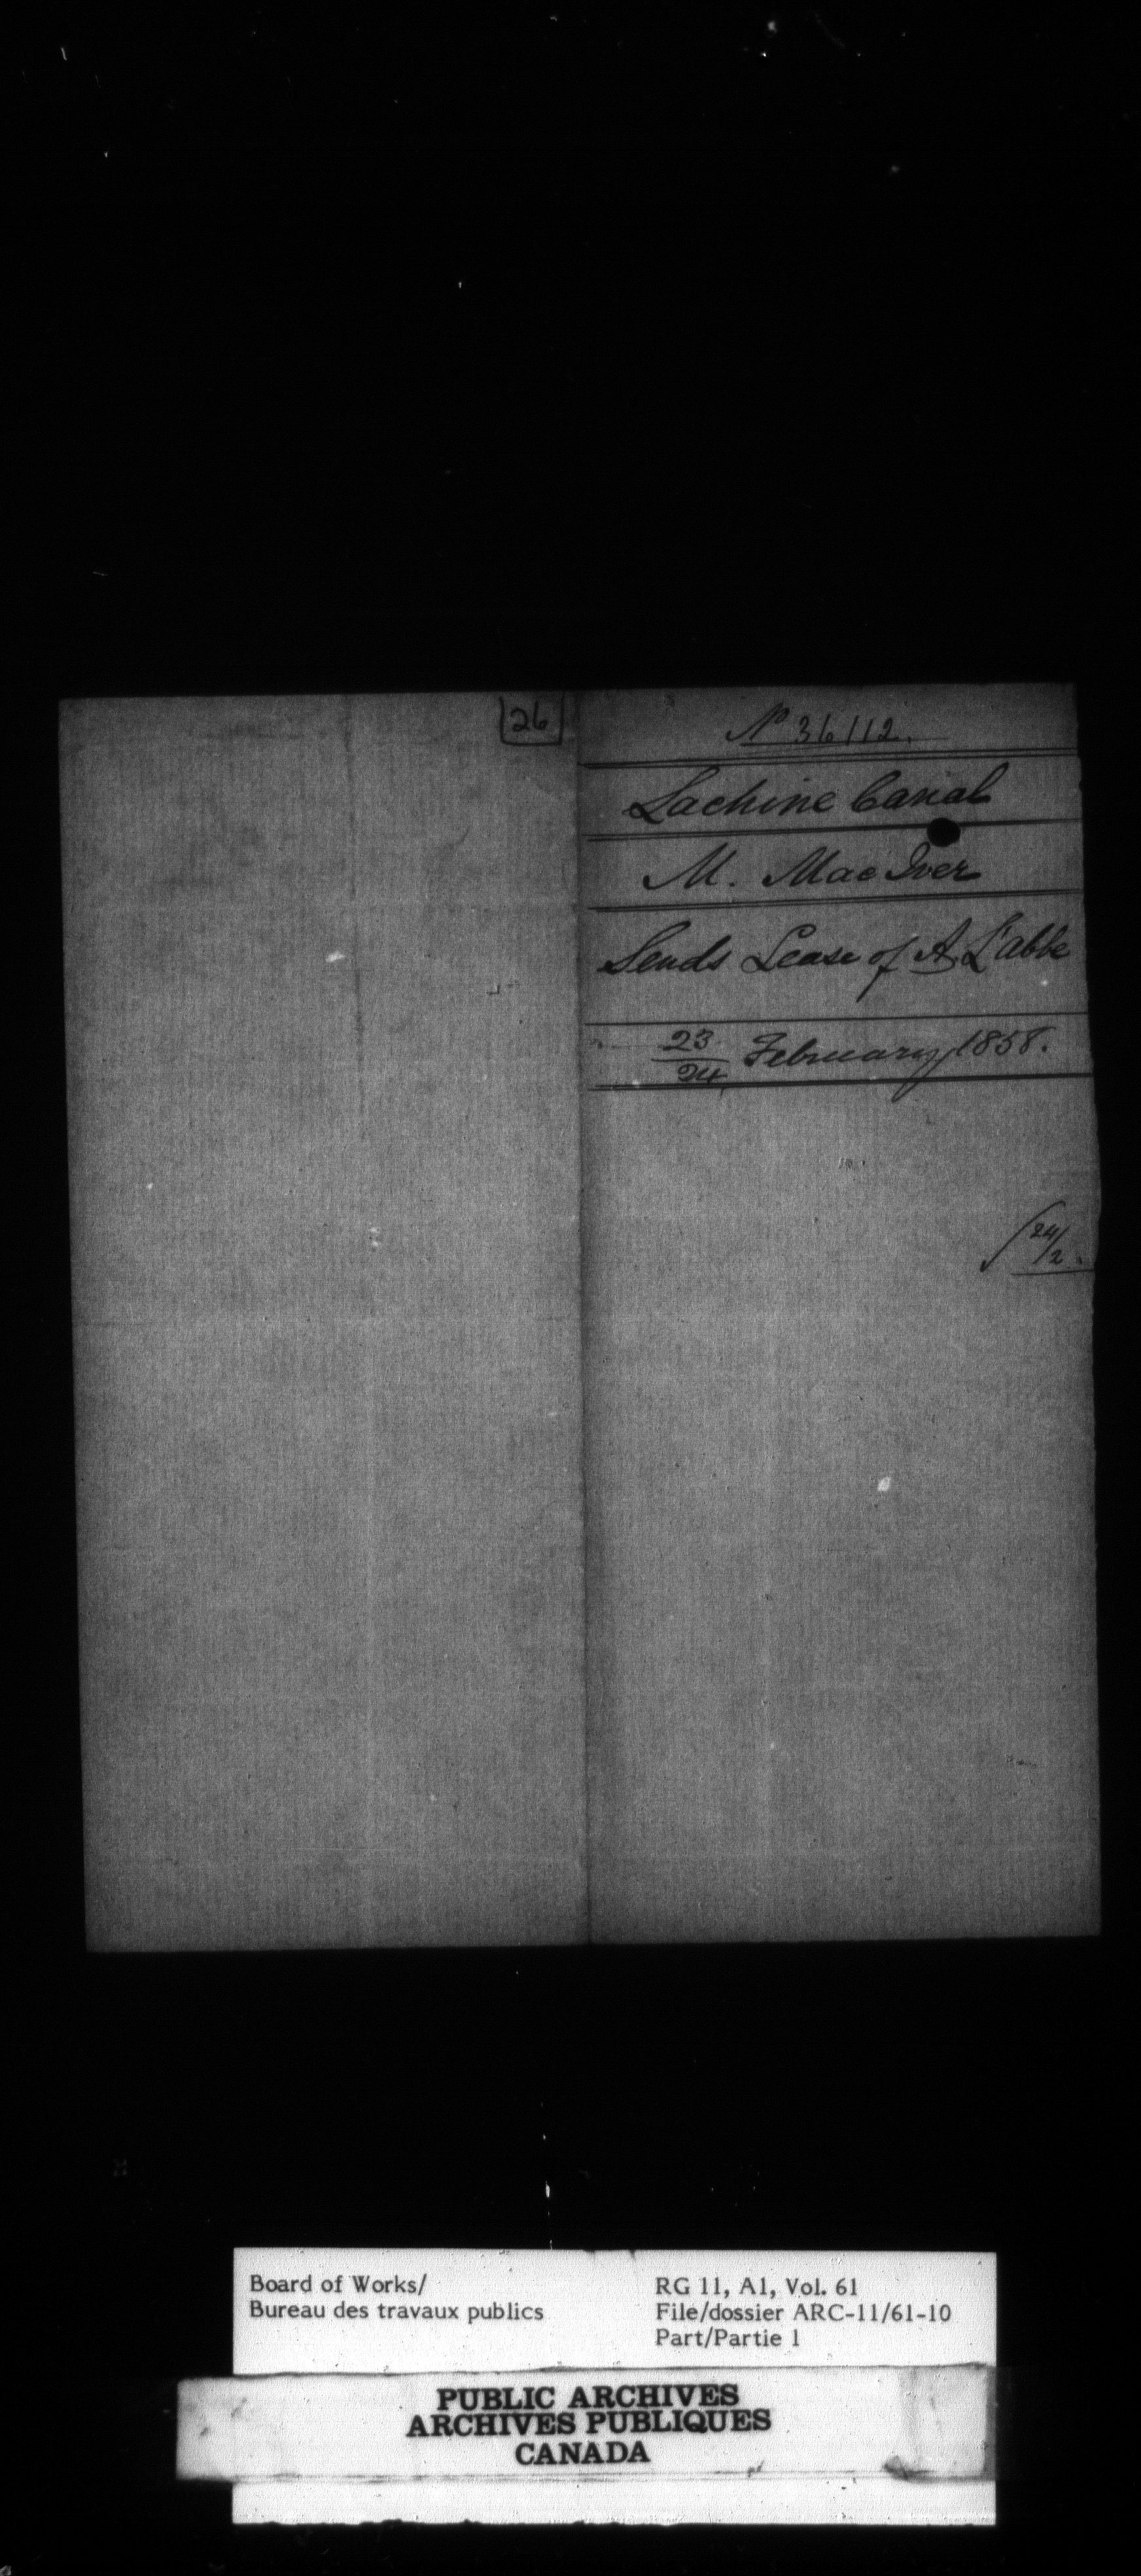 26
No 36112.
Lachine Canal
M. MacIver
Sends Lease of A. L'abbe
23/24 February 1858.
24/2.
Board of Works/
Bureau des travaux publics
RG 11, A1, Vol. 61
File/dossier ARC-11/61-10
Part/Partie 1
PUBLIC ARCHIVES
ARCHIVES PUBLIQUES
CANADA